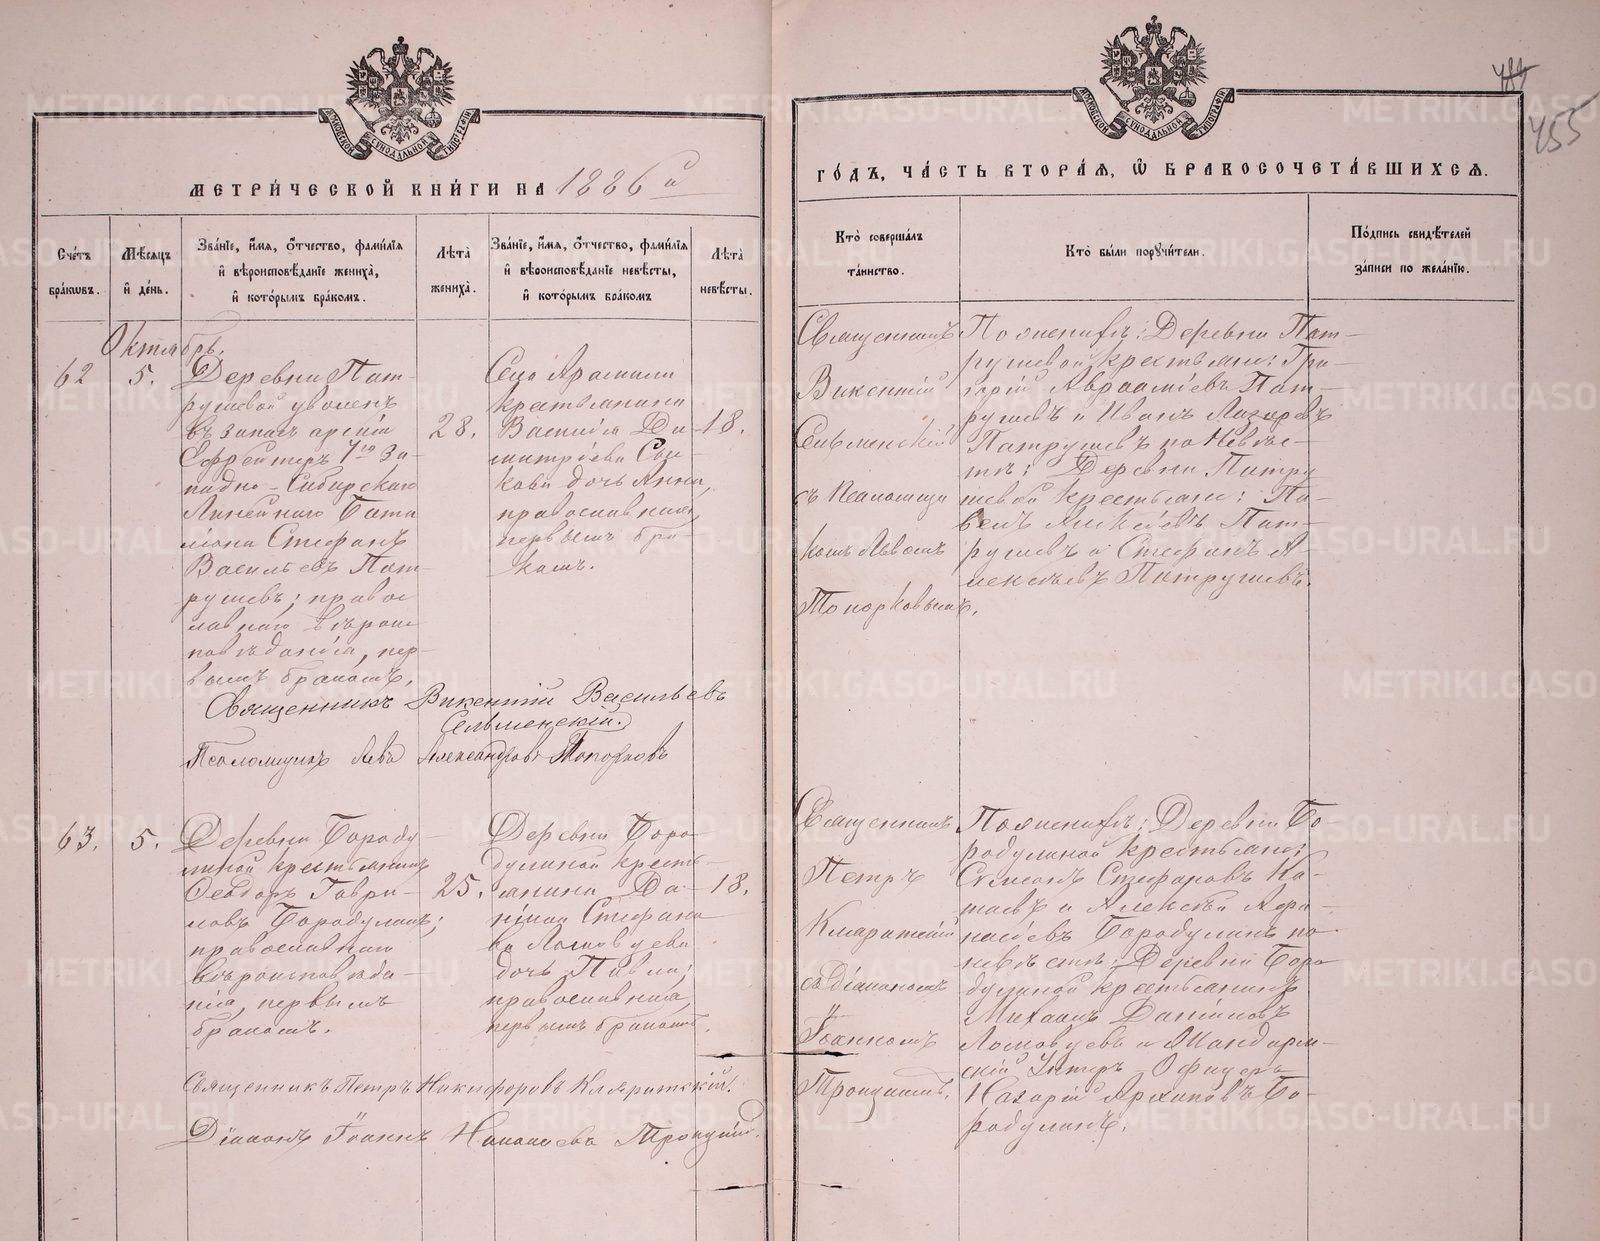 МОСКОВСКОЙ СѴНОДАЛЬНОЙ ТИПОГРАФІИ
МЕТРИ́ЧЕСКОЙ КНИ́ГИ НА 1886 й
Сче́тъ бра́кѡвъ.
Мѣ́сяцъ и҆ де́нь.
Зва́нїе, и҆́мя, ѻ҆́тчество, фами́лїя
и҆ вѣроисповѣ́данїе жениха̀,
и҆ кото́рымъ бра́комъ.
Лѣ́та̀ жениха̀.
Зва́нїе, и҆́мя, ѻ҆́тчество, фами́лїя
и҆ вѣроисповѣ́данїе невѣ́сты,
и҆ кото́рымъ бра́комъ
Лѣ́та̀ невѣ́сты.
Октябрь.
62
5.
Деревни Пат-
рушевой уволен
въ запасъ арміи
Ефрейторъ 7го За-
падно-Сибирскаго
Линейнаго Бата
ліона Стефанъ
Васильевъ Пат-
рушевъ; правос
лавнаго вѣроис
повѣданія, пер-
вымъ бракомъ.
28.
Села Арамили
крестьянина
Василія Ди-
митріева
дочь Анна,
православная,
первымъ бра-
комъ.
18.
Священникъ Викентій Васильевъ
Сельменскій.
Псаломщикъ Левъ Александровъ Топорковъ
63.
5.
Деревни Бороду-
линой крестьянинъ
Ѳеодоръ Гаври-
ловъ Бородулинъ;
православнаго
вѣроисповѣда-
нія, первымъ
бракомъ.
25.
Деревни Боро
дулиной кресть-
янина Да-
ніила Стефано
ва Ломовцева
дочь Павла;
православная,
первымъ бракомъ.
18.
Священникъ Петръ Никифоровъ Кларитскій.
Діаконъ Іоаннъ Троицкій.
МОСКОВСКОЙ СѴНОДАЛЬНОЙ ТИПОГРАФІИ
455
ГО́ДЪ, ЧА́СТЬ ВТОРА́Я, Ѡ҆ БРАКОСОЧЕТА́ВШИХСЯ.
Кто̀ соверша́лъ
та́инство.
Кто̀ бы́ли порꙋчи́тели.
По́дпись свидѣ́телей
за́писи по жела́нїю.
Священникъ
Викентій
Сельменскій
съ Псаломщи
комъ Львомъ
Топорковымъ.
По женихѣ: Деревни Пат-
рушевой крестьяне: Гри-
горій Авраамiевъ Пат-
рушевъ и Иванъ Лазаревъ
Патрушевъ по невѣс-
тѣ: Деревни Патру
шевой крестьяне: Па-
велъ Алексѣевъ Пат-
рушевъ и Стефанъ А-
лексѣевъ Патрушевъ.
Священникъ
Петръ
Кларитскій
съ Діакономъ
Іоанномъ
Троицкимъ.
По женихѣ: Деревни Бо-
родулиной крестьяне:
Стефановъ Ка-
таевъ и Алексѣй Аѳа-
насіевъ Бородулинъ по
невѣстѣ: Деревни Боро
дулиной крестьянинъ
Михаилъ Даніиловъ
Ломовцевъ и Жандарм-
скій Унтеръ-Офицеръ
Назарій Архиповъ Бо-
родулинъ.
METRIKI.GASO-URAL.RU